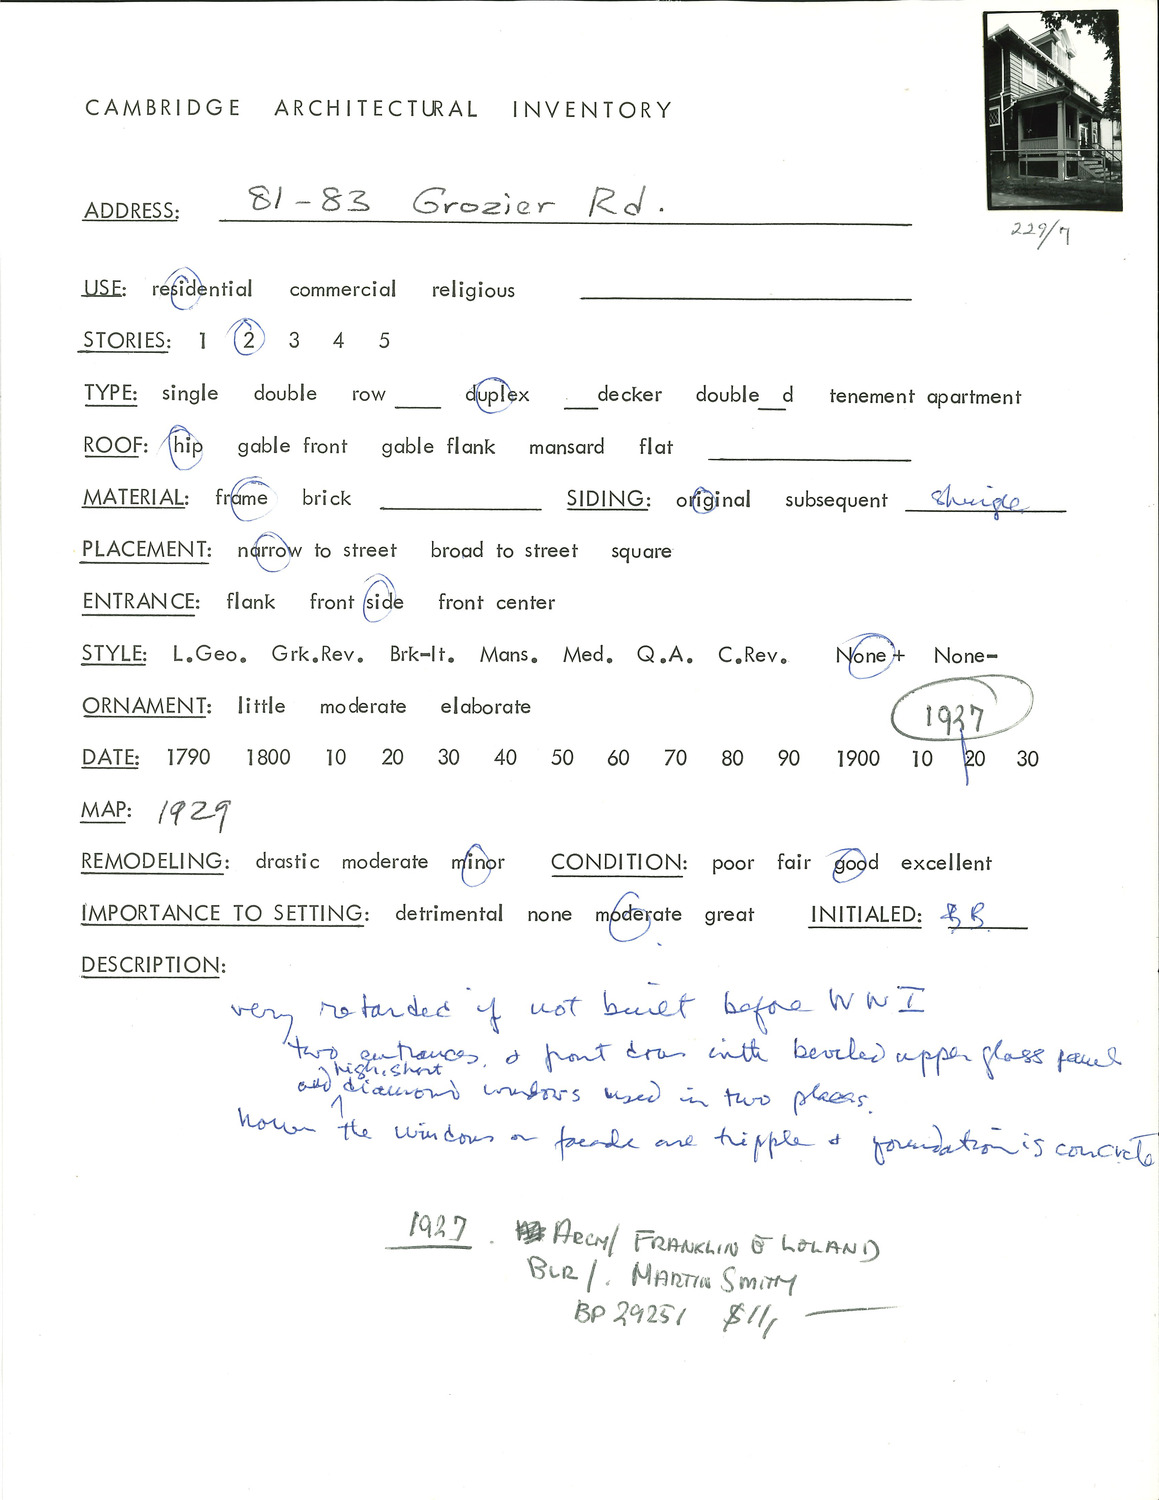 CAMBRIDGE ARCHITECTURAL INVENTORY
ADDRESS: 81-83 Grozier Rd.
229/7
USE: residential commercial religious
STORIES: 1 2 3 4 5
TYPE: single double row ___ duplex ___decker double__d tenement apartment
ROOF: hip gable front gable flank mansard flat
MATERIAL: frame brick SIDING: original subsequent Shingle
PLACEMENT: narrow to street broad to street square
ENTRANCE: flank front side front center
STYLE: L.Geo. Grk.Rev. Brk-It. Mans. Med. Q.A. C.Rev. None+ None-
ORNAMENT: little moderate elaborate
1927
DATE: 1790 1800 10 20 30 40 50 60 70 80 90 1900 10 20 30
MAP: 1929
REMODELING: drastic moderate minor CONDITION: poor fair good excellent
IMPORTANCE TO SETTING: detrimental none moderate great INITIALED: BB
DESCRIPTION:
very retarded if not built before WW I
two entrances, & front door with beveled upper glass panel
high, short
and diamond windows used in two places.
the windows on facade are tripple & foundation is concrete
1927. Arch/ FRANKLIN E LELAND
BLR/. MARTIN SMITH
BP 29251 $11,